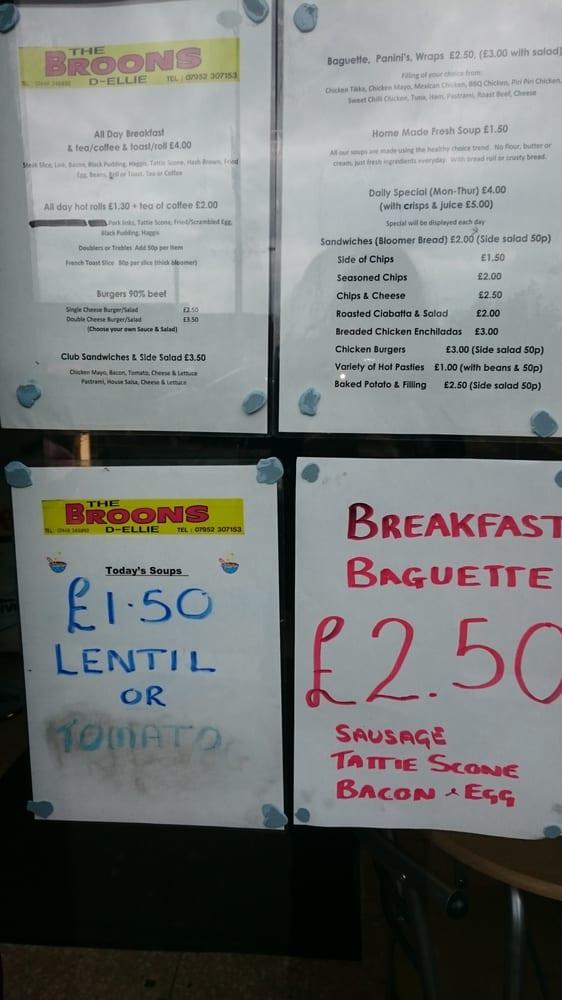 THE
BROONS
D-ELLIE
TEL : 07952 307153
All Day Breakfast
& tea/coffee & toast/roll £4.00
Steak Slice, Link, Bacon, Black Pudding, Haggis, Tattie Scone, Hash Brown, Fried
Egg, Beans, Roll or Toast. Tea or Coffee
All day hot rolls £1.30 + tea of coffee £2.00
Pork links, Tattie Scone, Fried/Scrambled Egg,
Black Pudding, Haggis
Doublers or Trebles Add 50p per item
French Toast Slice 80p per slice (thick bloomer)
Burgers 90% beef
Single Cheese Burger/Salad £2.50
Double Cheese Burger/Salad £3.50
(Choose your own Sauce & Salad)
Club Sandwiches & Side Salad £3.50
Chicken Mayo, Bacon, Tomato, Cheese & Lettuce
Pastrami, House Salsa, Cheese & Lettuce
Baguette, Panini's, Wraps £2.50, (£3.00 with salad)
Filling of your choice from:
Chicken Tikka, Chicken Mayo, Mexican Chicken, BBQ Chicken, Piri Piri Chicken,
Sweet Chilli Chicken, Tuna, Ham, Pastrami, Roast Beef, Cheese
Home Made Fresh Soup £1.50
All our soups are made using the healthy choice trend. No flour, butter or
cream, just fresh ingredients everyday. With bread roll or crusty bread.
Daily Special (Mon-Thur) £4.00
(with crisps & juice £5.00)
Special will be displayed each day
Sandwiches (Bloomer Bread) £2.00 (Side salad 50p)
Side of Chips £1.50
Seasoned Chips £2.00
Chips & Cheese £2.50
Roasted Ciabatta & Salad £2.00
Breaded Chicken Enchiladas £3.00
Chicken Burgers £3.00 (Side salad 50p)
Variety of Hot Pasties £1.00 (with beans & 50p)
Baked Potato & Filling £2.50 (Side salad 50p)
THE
BROONS
D-ELLIE
TEL : 07952 307153
Today's Soups
£1.50
LENTIL
OR
TOMATO
BREAKFAST
BAGUETTE
£2.50
SAUSAGE
TATTIE SCONE
BACON & EGG